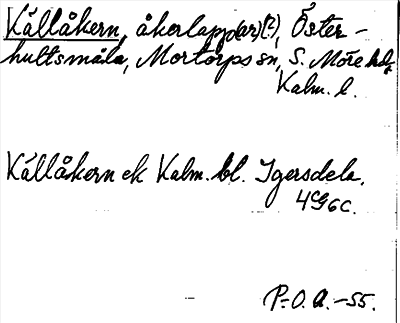 Källåkern, åkerlapp(ar)(?), Öster-
hultsmåla, Mortorps sn, S. Möre hd,
Kalm. l.
Källåkern ek Kalm. bl. Igersdela.
4G6c.
P.O.A.-55.